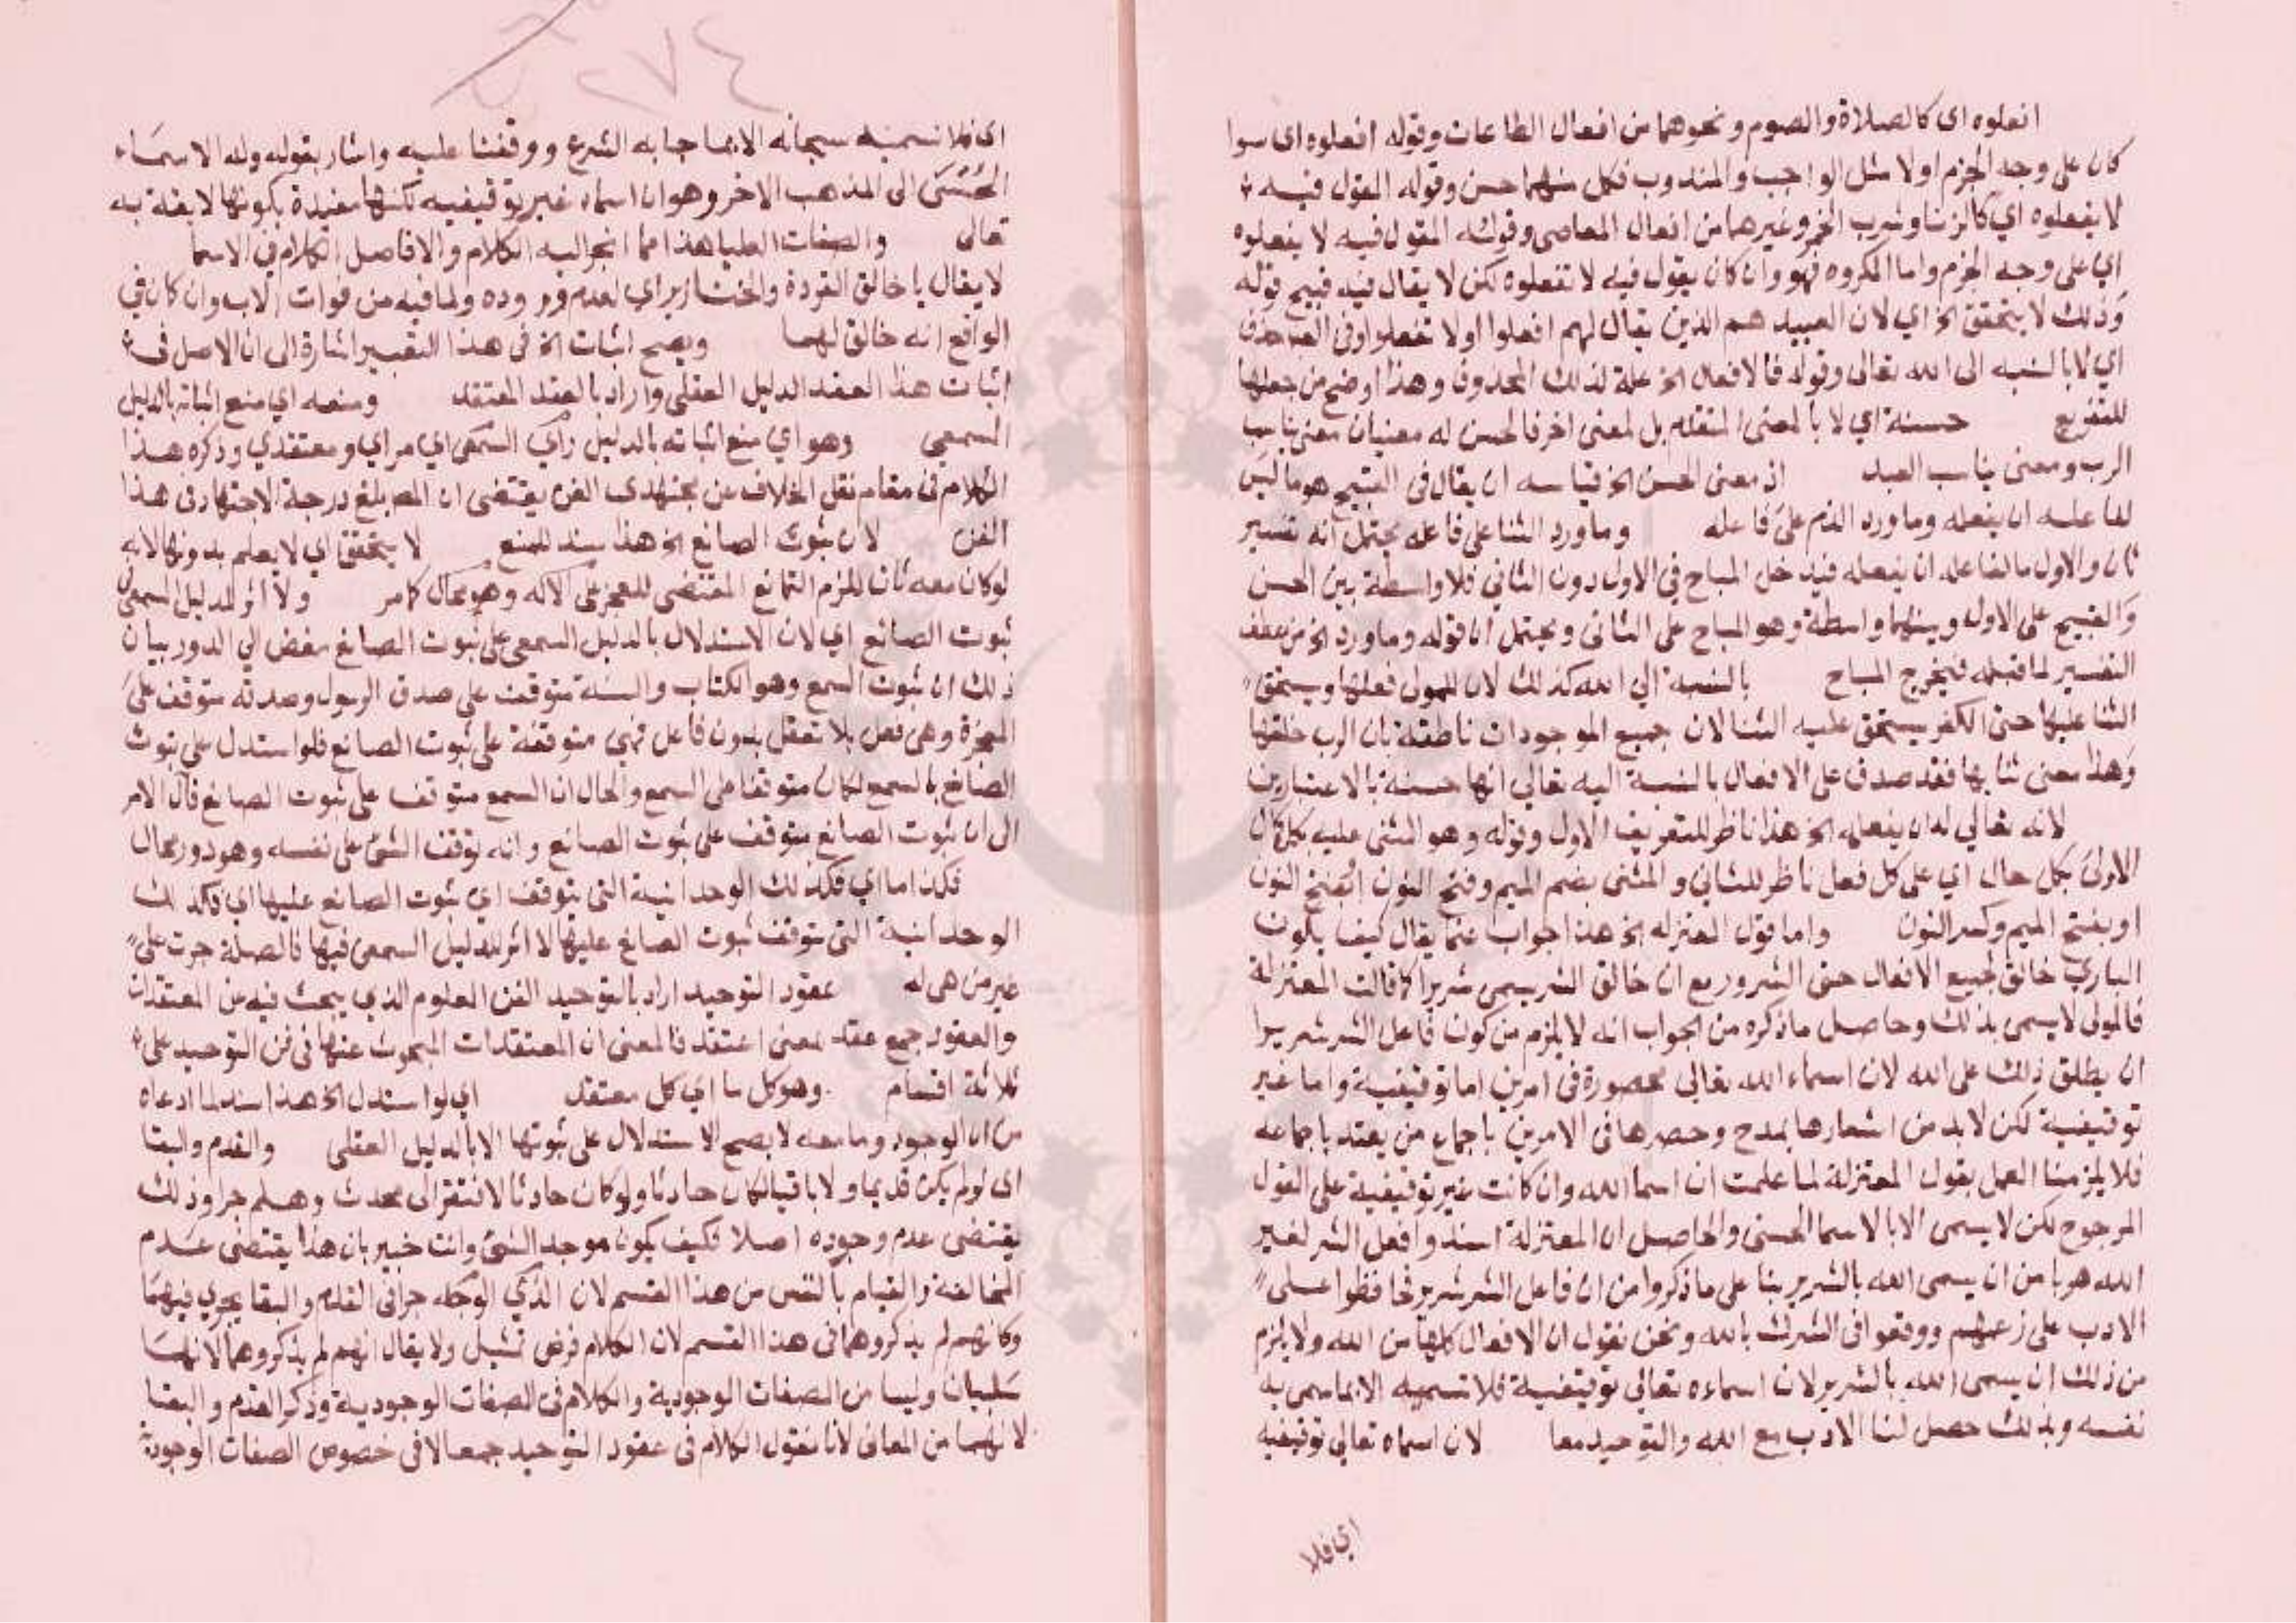 افعلوه اى كالصلاة والصوم ونحوهما من افعال الطاعات وقوله افعلوه اى سوا
كان على وجه الجزم اولا مثل الواجب والمندوب فكل منهما حسن وقوله المقول فيه
لا يفعلوه اي كالزنا وشرب الخمر وغيرهما من افعال المعاصى وقوله المقول فيه لا يفعلوه
اي على وجه الجزم واما المكروه فهو وان كان يقول فيه لا تفعلوه لكن لا يقال فيه قبيح قوله
وذلك لا يتحقق الخ اي لان العبيد هم الذين يقال لهم افعلوا اولا تفعلوا وفى العبا حذف
اي لا بالنسبه الى الله تعالى وقوله فالافعال الخ علة لذلك المحذوف وهذا اوضح من جعلها
للتفريع حسنة اي لا بالمعنى المتقدم بل لمعنى اخر فالحسن له معنيان معنى يناسب
الرب ومعنى يناسب العبد اذ معنى الحسن الخ قياسه ان يقال فى القبيح هو ما ليس
لفاعله ان يفعله وما ورد الذم على فاعله وما ورد الثنا على فاعله يحتمل انه تفسير
ثان والاول ما لفاعله ان يفعله فيدخل المباح في الاول دون الثاني فلا واسطة بين الحسن
والقبيح على الاول وبينهما واسطة وهو المباح على الثانى ويحتمل ان قوله وما ورد الخ من عطف
التفسير لما قبله فيخرج المباح بالنسبة الي الله كذلك لان للمولى فعلها ويستحق
الثنا عليها حتى الكفر يستحق عليه الثنا لان جميع الموجودات ناطقة بان الرب خلقها
وهذا معنى ثنا بها فقد صدق على الافعال بالنسبة اليه تعالي انها حسنة بالاعتبارين
لانه تعالي له ان يفعله الخ هذا ناظر للتعريف الاول وقوله وهو المثنى عليه بكل حال
الاولى بكل حال اي على كل فعل ناظر للثاني والمثنى بضم الميم وفتح النون النون
او بفتح الميم وكسر النون واما قول المعتزله الخ هذا جواب عما يقال كيف يكون
الباري خالق لجميع الافعال حتى الشرور مع ان خالق الشر يسمى شريرا كما قالت المعتزلة
فالمولى لا يسمى بذلك وحاصل ما ذكره من الجواب انه لا يلزم من كون فاعل الشر شريرا
ان يطلق ذلك على الله لان اسماء الله تعالي محصورة فى امرين اما توقيفية واما غير
توقيفية لكن لا بد من اشعارها بمدح وحصرها فى الامرين باجماع من يعتد باجماعه
فلا يلزمنا العمل بقول المعتزلة لما علمت ان اسما الله وان كانت غير توقيفية على القول
المرجوح لكن لا يسمى الا بالاسما الحسنى والحاصل ان المعتزلة اسندوا فعل الشر لغير
الله هربا من ان يسمى الله بالشرير بنا على ما ذكروا من ان فاعل الشر شرير فحافظوا على
الادب على زعمهم ووقعوا فى الشرك بالله ونحن نقول ان الافعال كلها من الله ولا يلزم
من ذلك ان يسمى الله بالشرير لان اسماءه تعالي توقيفية فلا تسميه الا بما سمى به
نفسه وبذلك حصل لنا الادب مع الله والتوحيد معا لان اسماه تعالي توقيفيه
اي فلا
٢٧٤
اى فلا نسميه سبحانه الا بما جا به الشرع ووقفنا عليه واشار بقوله وله الاسماء
الحسنى الى المذهب الاخر وهو ان اسماه غير توقيفيه لكنها مقيدة بكونها لايقة به
تعالى والصفات العليا هذا مما انجر اليه الكلام والا فاصل الكلام في الاسما
لا يقال يا خالق القردة والخنازير اي لعدم وروده ولما فيه من فوات الادب وان كان في
الواقع انه خالق لهما ويصح اثبات الخ فى هذا التعبير اشارة الى ان الاصل فى
اثبات هذا العقد الدليل العقلى واراد بالعقد المعتقد ومنعه اي منع اثباته بالدليل
السمعي وهو اي منع اثباته بالدليل السمعى رأى اي مراي ومعتقدي وذكره هذا
الكلام فى مقام نقل الخلاف عن مجتهدى الفن يقتضى ان المص بلغ درجة الاجتهاد فى هذا
الفن لان ثبوت الصانع الخ هذا سند للمنع لا يتحقق اي لا يعلم بدونها لانه
لو كان معه ثان للزم التمانع المقتضى للعجز على الاله وهو محال كما مر ولا اثر للدليل السمعى فى
ثبوت الصانع اي لان الاستدلال بالدليل السمعى على ثبوت الصانع مفض الي الدور بيان
ذلك ان ثبوت السمع وهو الكتاب والسنة متوقف على صدق الرسول وصدقه متوقف على
المعجزة وهى فعل بلا تعقل بدون فاعل فهي متوقفة على ثبوت الصانع فلو استدل على ثبوت
الصانع بالسمع لكان متوقفا على السمع والحال ان السمع متوقف على ثبوت الصانع فال الامر
الى ان ثبوت الصانع متوقف على ثبوت الصانع وانه توقف الشئ على نفسه وهو دور محال
فكذا ما اي فكذلك الوحدانية التى يتوقف اي ثبوت الصانع عليها اي فكذلك
الوحدانية التى يتوقف ثبوت الصانع عليها لا اثر للدليل السمعى فيها فالصلة جرت على
غير من هى له عقود التوحيد اراد بالتوحيد الفن المعلوم الذي يبحث فيه عن المعتقدات
والعقود جمع عقد بمعنى اعتقد فالمعنى ان المعتقدات المبحوث عنها فى فن التوحيد على
ثلاثة اقسام وهو كل ما اي كل معتقد اي لو استدل الخ هذا سند لما ادعاه
من ان الوجود وما معه لا يصح الاستدلال على ثبوتها الا بالدليل العقلى والقدم والبقا
اى لو لم يكن قديما ولا باقيا لكان حادثا ولو كان حادثا لافتقر الى محدث وهلم جرا وذلك
يقتضى عدم وجوده اصلا فكيف يكون موجد الشئ وانت خبير بان هذا يقتضى عدم
المخالفة والقيام بالنفس من هذا القسم لان الذي جرا فى القدم والبقا يجري فيهما
وكانهم لم يذكروهما فى هذا القسم لان الكلام فرض تمثيل ولا يقال انهم لم يذكروهما لانهما
سلبيان وليسا من الصفات الوجودية والكلام فى الصفات الوجودية وذكر القدم والبقا
لانهما من المعانى لانا نقول الكلام فى عقود التوحيد جمعا لا فى خصوص الصفات الوجودية